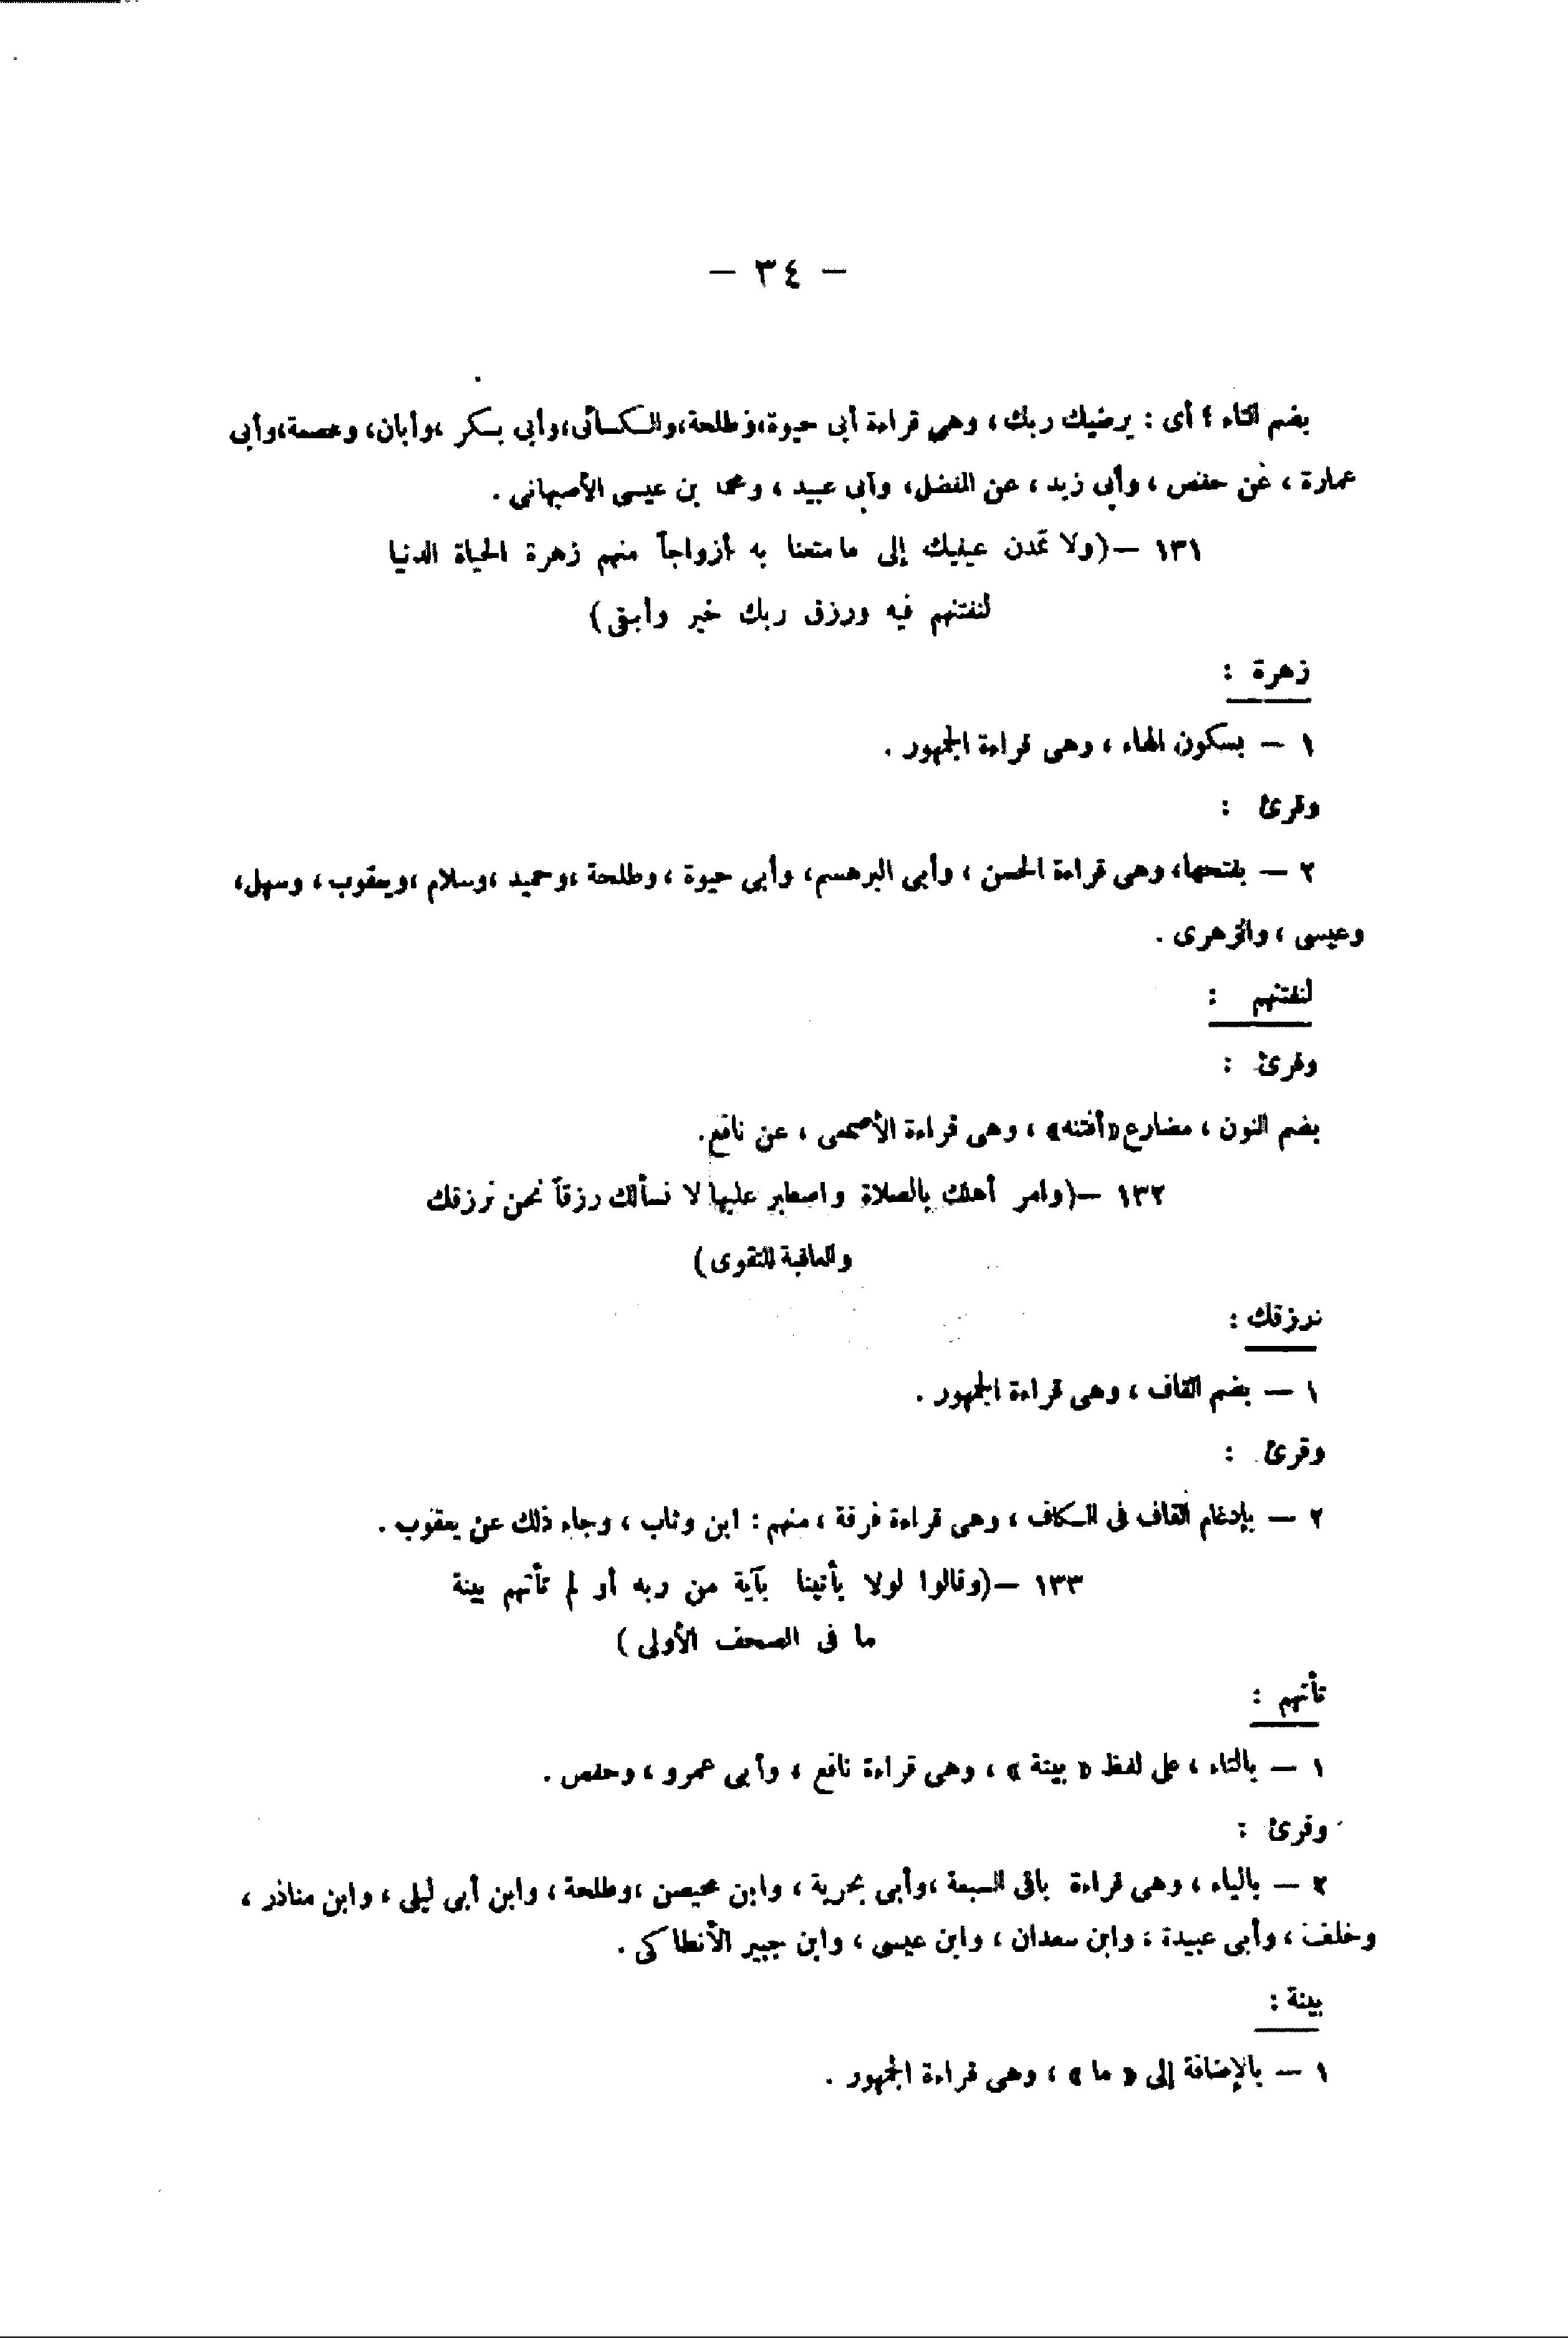 — ٣٤ —
بضم التاء ؛ أى : يرضيك ربك ، وهى قراءة أبى حيوة ، وطلحة ، والكسائى ، وأبى بكر ، وأبان ، وعصمة ، وأبى
عمارة ، عن حفص ، وأبى زيد ، عن المفضل ، وأبى عبيد ، ومحمد بن عيسى الأصبهانى .
١٣١ — (ولا تمدن عينيك إلى ما متعنا به أزواجاً منهم زهرة الحياة الدنيا
لنفتنهم فيه ورزق ربك خير وأبقى)
زهرة :
١ — بسكون الهاء ، وهى قراءة الجمهور .
وقرئ :
٢ — بفتحها ، وهى قراءة الحسن ، وأبى البرهسم ، وأبى حيوة ، وطلحة ، وحميد ، وسلام ، ويعقوب ، وسهل ،
وعيسى ، والزهرى .
لنفتنهم :
وقرئ :
بضم النون ، مضارع «أفتنه» ، وهى قراءة الأصمعى ، عن نافع .
١٣٢ — (وامر أهلك بالصلاة واصطبر عليها لا نسألك رزقاً نحن نرزقك
والعاقبة للتقوى)
نرزقك :
١ — بضم القاف ، وهى قراءة الجمهور .
وقرئ :
٢ — بإدغام القاف فى الكاف ، وهى قراءة فرقة ، منهم : ابن وثاب ، وجاء ذلك عن يعقوب .
١٣٣ — (وقالوا لولا يأتينا بآية من ربه أو لم تأتهم بينة
ما فى الصحف الأولى )
تأتهم :
١ — بالتاء ، على لفظ « بينة » ، وهى قراءة نافع ، وأبى عمرو ، وحفص .
وقرئ :
٢ — بالياء ، وهى قراءة باقى السبعة ، وأبى بحرية ، وابن محيصن ، وطلحة ، وابن أبى ليلى ، وابن مناذر ،
وخلف ، وأبى عبيدة ، وابن سعدان ، وابن عيسى ، وابن جبير الأنطاكى .
بينة :
١ — بالإضافة إلى « ما » ، وهى قراءة الجمهور .